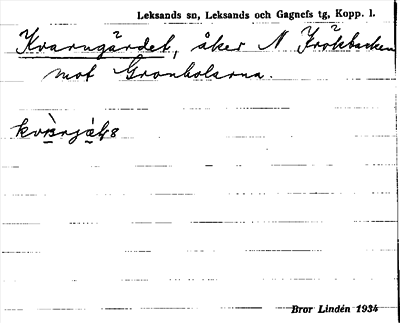 Leksands sn, Leksands och Gagnefs tg, Kopp. l.
Kvarngärdet, åker N Frökbacken
mot Gronholarna.
Bror Lindén 1934